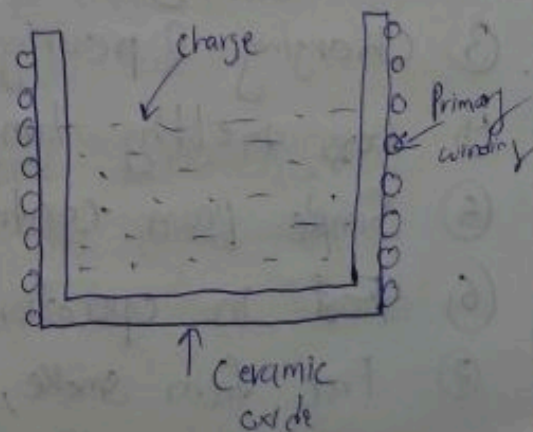 charge
Primary
winding
Ceramic
oxide